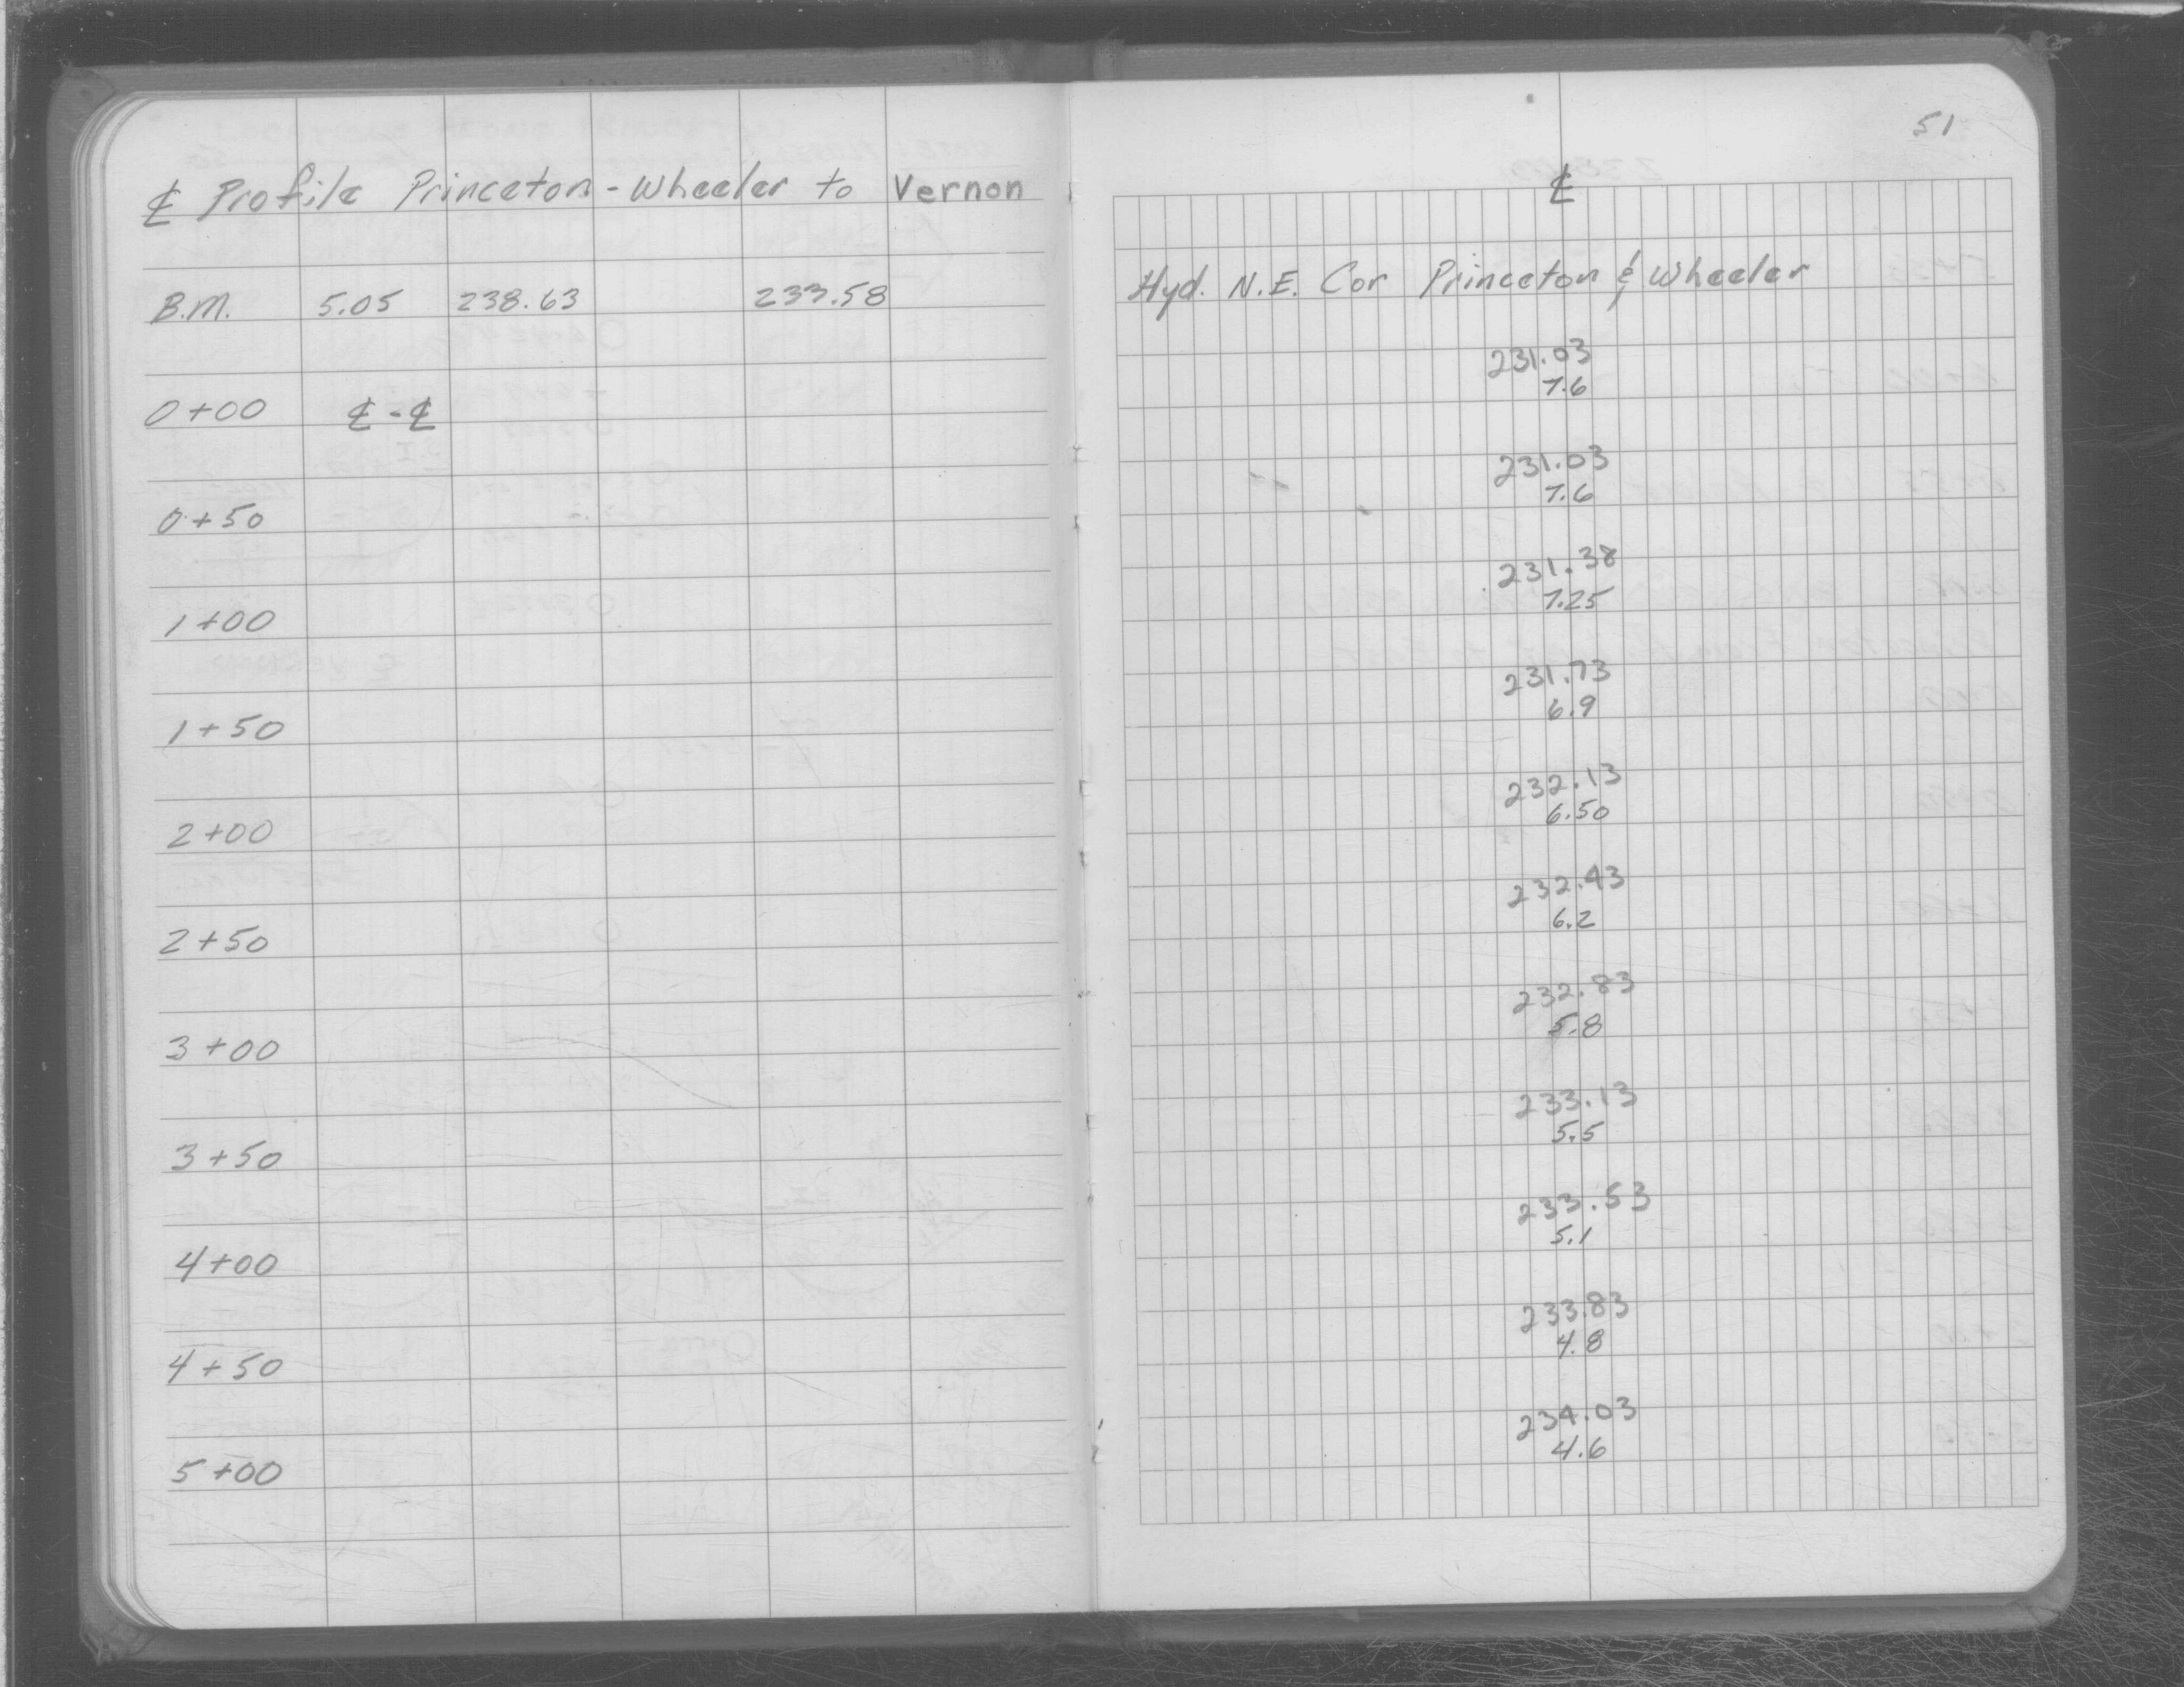 ℄ Profile Princeton - Wheeler to Vernon
B.M. 5.05 238.63 233.58
0+00 ℄ - ℄
0+50
1+00
1+50
2+00
2+50
3+00
3+50
4+00
4+50
5+00
51
℄
Hyd. N.E. Cor Princeton & Wheeler
231.03
7.6
231.03
7.6
231.38
7.25
231.73
6.9
232.13
6.50
232.43
6.2
232.83
5.8
233.13
5.5
233.53
5.1
233.83
4.8
234.03
4.6